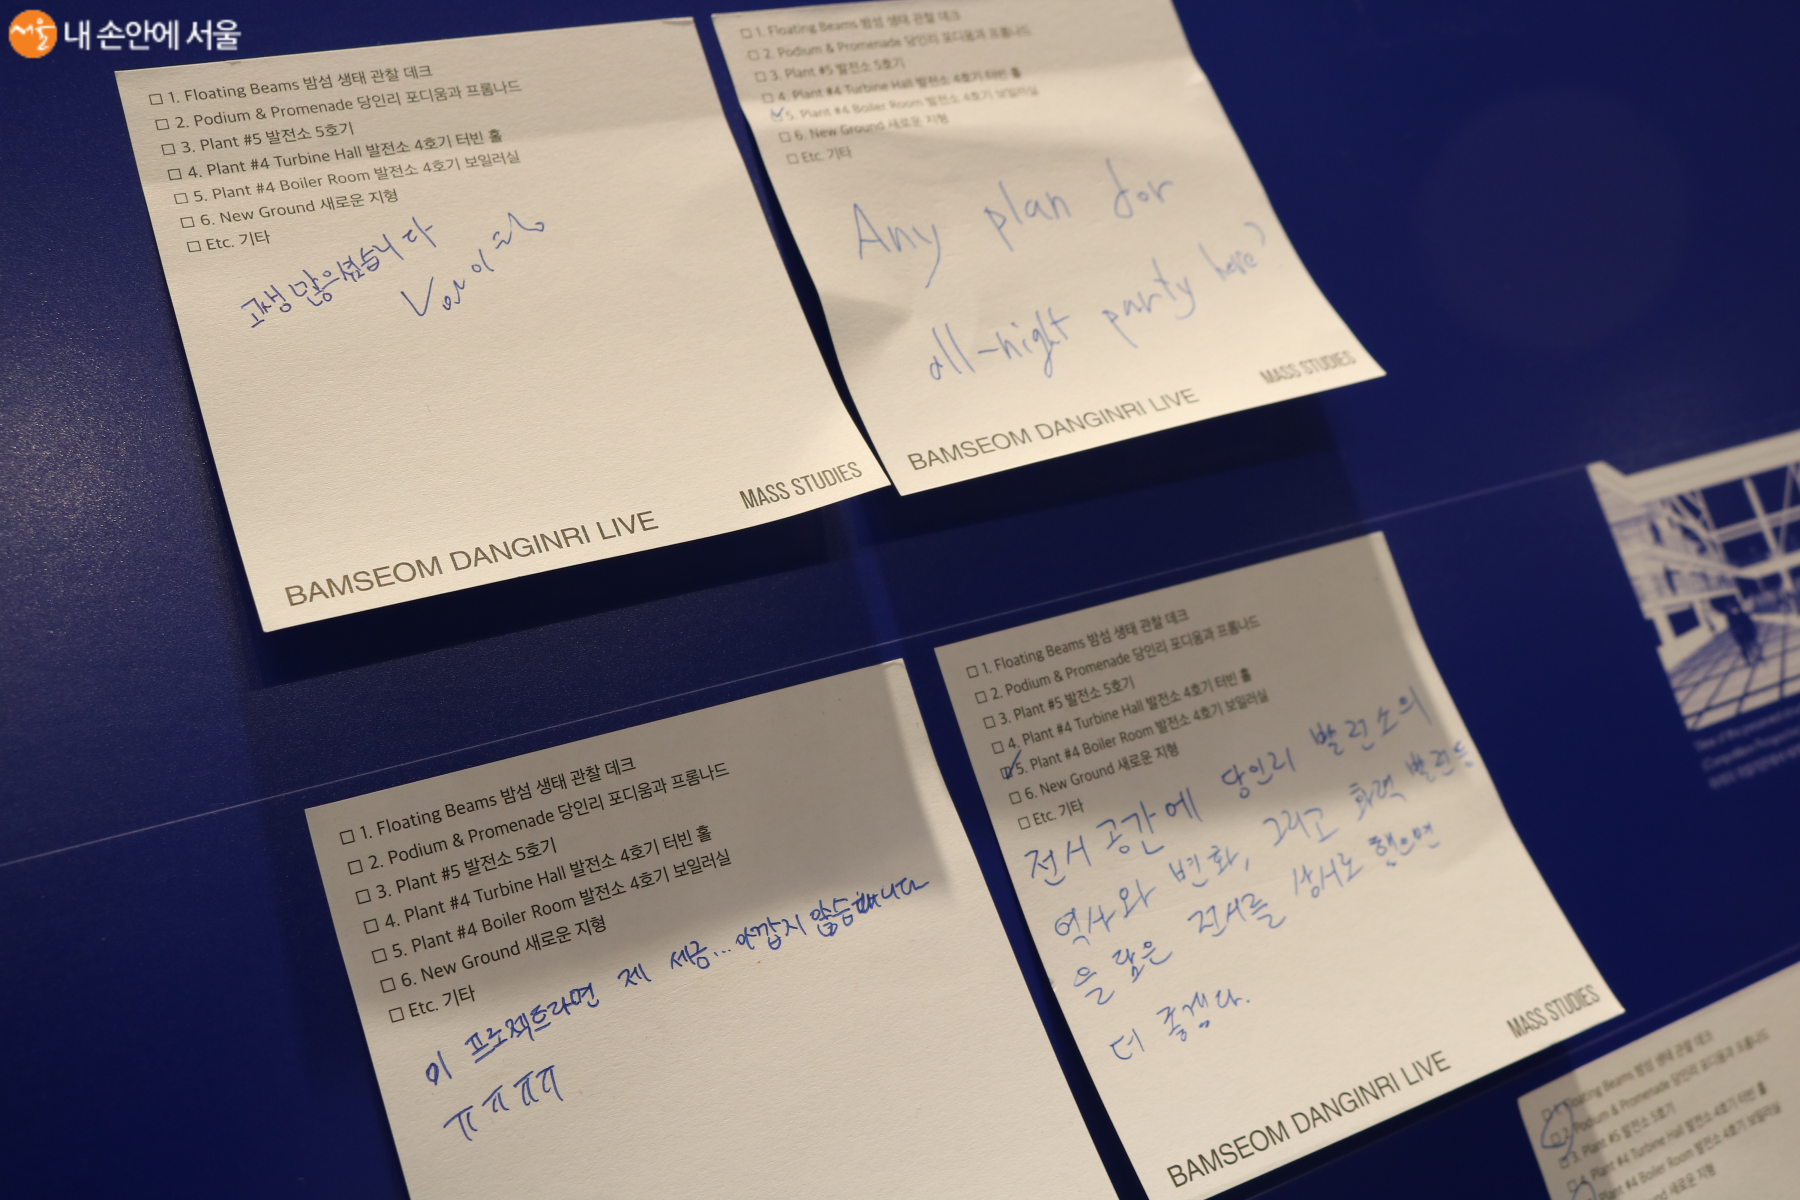 서울 내 손안에 서울
□ 1. Floating Beams 밤섬 생태 관찰 데크
□ 2. Podium & Promenade 당인리 포디움과 프롬나드
□ 3. Plant #5 발전소 5호기
□ 4. Plant #4 Turbine Hall 발전소 4호기 터빈 홀
□ 5. Plant #4 Boiler Room 발전소 4호기 보일러실
□ 6. New Ground 새로운 지형
□ Etc. 기타
고생 많으셨습니다
BAMSEOM DANGINRI LIVE
MASS STUDIES
□ 1. Floating Beams 밤섬 생태 관찰 데크
□ 2. Podium & Promenade 당인리 포디움과 프롬나드
□ 3. Plant #5 발전소 5호기
□ 4. Plant #4 Turbine Hall 발전소 4호기 터빈 홀
☑ 5. Plant #4 Boiler Room 발전소 4호기 보일러실
□ 6. New Ground 새로운 지형
□ Etc. 기타
Any plan for
all-night party here?
BAMSEOM DANGINRI LIVE
MASS STUDIES
□ 1. Floating Beams 밤섬 생태 관찰 데크
□ 2. Podium & Promenade 당인리 포디움과 프롬나드
□ 3. Plant #5 발전소 5호기
□ 4. Plant #4 Turbine Hall 발전소 4호기 터빈 홀
□ 5. Plant #4 Boiler Room 발전소 4호기 보일러실
□ 6. New Ground 새로운 지형
□ Etc. 기타
이 프로젝트라면 제 세금... 아깝지 않습니다
ㅠㅠㅠㅠ
□ 1. Floating Beams 밤섬 생태 관찰 데크
□ 2. Podium & Promenade 당인리 포디움과 프롬나드
□ 3. Plant #5 발전소 5호기
□ 4. Plant #4 Turbine Hall 발전소 4호기 터빈 홀
☑ 5. Plant #4 Boiler Room 발전소 4호기 보일러실
□ 6. New Ground 새로운 지형
□ Etc. 기타
전시 공간에 당인리 발전소의
역사와 변화, 그리고 화력 발전등
을 담은 전시를 상시로 했으면
더 좋겠다.
BAMSEOM DANGINRI LIVE
MASS STUDIES
1. Floating Beams 밤섬 생태 관찰 데크
2. Podium & Promenade 당인리 포디움과 프롬나드
□ 3. Plant #5 발전소 5호기
□ 4. Plant #4 Turbine Hall 발전소 4호기 터빈 홀
Plant #4 Boiler Room 발전소 4호기 보일러실
Ground 새로운 지형